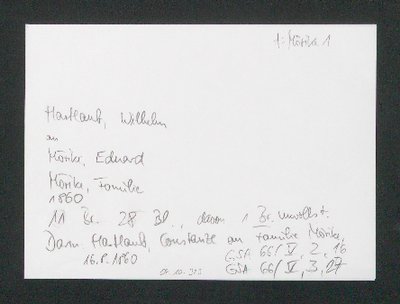 A: Mörike 1
Hartlaub, Wilhelm
an
Mörike, Eduard
Mörike, Familie
1860
11 Br. 28 Bl., davon 1 Br. unvollst.
Darin: Hartlaub, Constanze an Familie Mörike,
16.8.1860
GSA 66/V, 2, 16
GSA 66/V, 3, 27